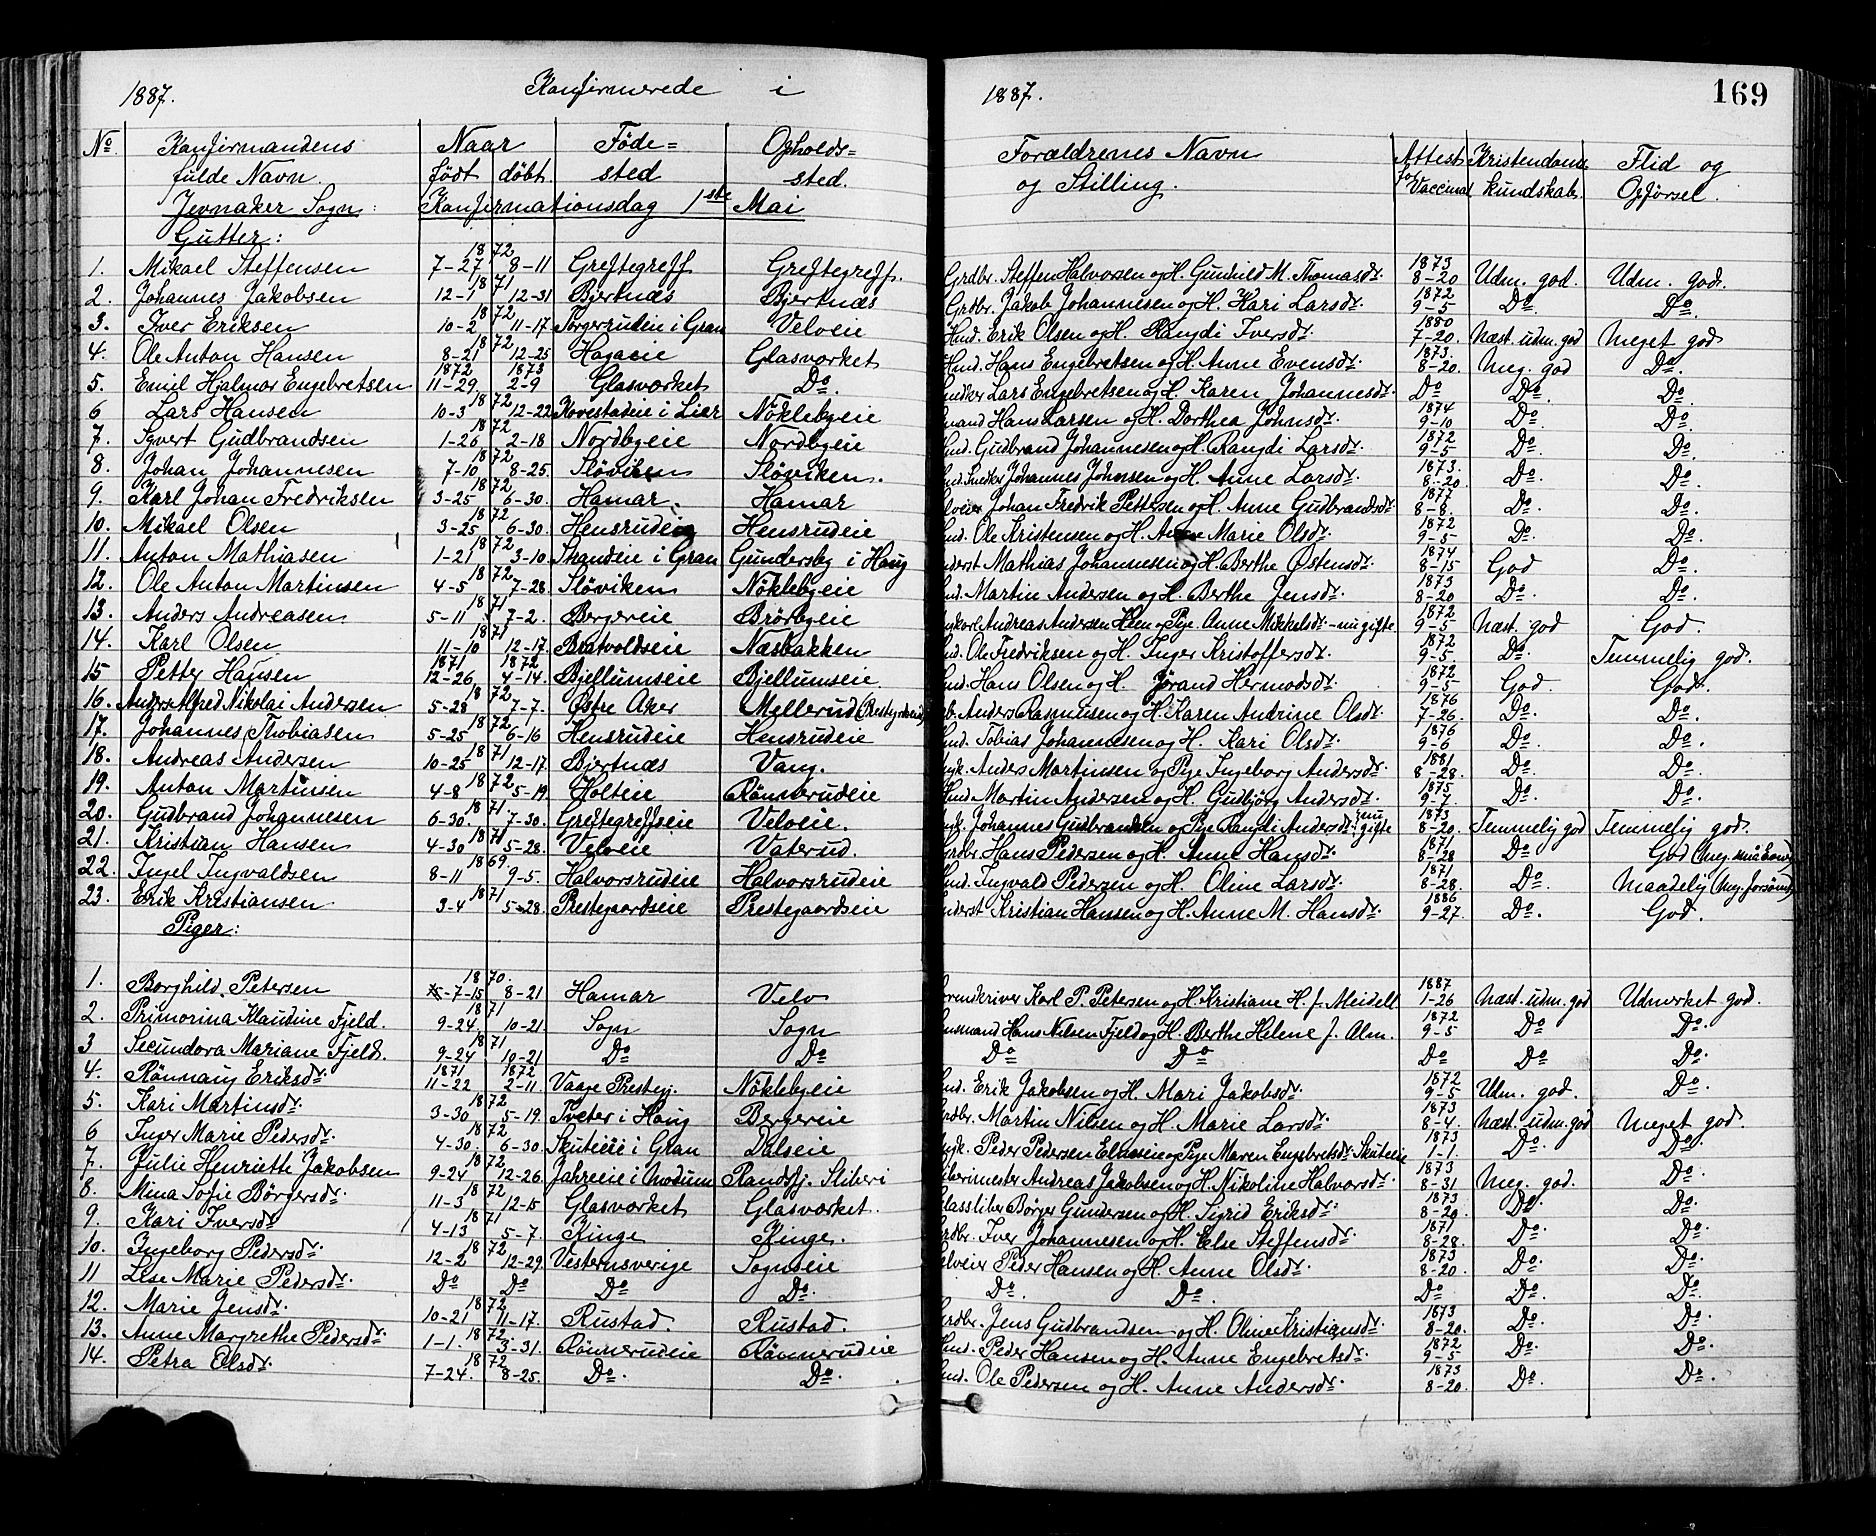 1887. Konfirmerede i 1887. 169
No Konfirmandens fulde Navn. Naar født døbt. Føde= sted Opholds= sted. Forældrenes Navn og Stilling. Attest for Vaccinat. Kristendoms kundskab. Flid og Opførsel.
Jevnaker Sogn: Konfirmationsdag 1ste Mai
Gutter:
1. Mikael Steffensen 1872 7-27 8-11 Greftegreff Greftegreff. Grdbr. Steffen Halvorsen og H. Gunhild M. Thomasdr. 1873 8-20 Udm. god. Udm. god.
2. Johannes Jakobsen 1871 12-1 12-31 Bjertnæs Bjertnæs Grdbr. Jakob Johannesen og H. Kari Larsdr. 1872 9-5 Do Do.
3. Iver Eriksen 1872 10-2 11-17 Torgersrudeie i Gran Velveie Hmd. Erik Olsen og H. Rangdi Iversdr. 1880 7-20. Næst. udm. god Meget god
4. Ole Anton Hansen 1872 8-21 12-25 Hagaeie Glasværket Hmd. Hans Engebretsen og H. Anne Evensdr. 1873. 8-20. Meg. god Do.
5. Emil Hjalmar Engebretsen 1872 11-29 1873 2-9 Glasværket Do. Lars Engebretsen og H. Karen Johannesdr. Do Do. Do.
6 Lars Hansen 1872 10-3 12-22 Hovestadeie i Lier Nöklebyeie Hans Larsen og H. Dorthea Johnsdr. 1874 9-10 Do. Do.
7. Syvert Gudbrandsen 1872 1-26 2-18 Nordbyeie Nordbyeie Gudbrand Johannesen og H. Rangdi Larsdr. 1872 9-5 Do. Do.
8. Johan Johannesen 1872 7-10 8-25 Slöviken Slöviken. Snedker Johannes Johnsen og H. Anne Larsdr. 1873. 8-20. Do. Do.
9. Karl Johan Fredriksen 1872 3-25 6-30. Hamar. Hamar Johan Fredrik Pettersen og H. Anne Gudbrandsdr. 1877 8-8. Do. Do.
10. Mikael Olsen 1872 3-25 6-30. Hensrudeie Hensrudeie Ole Kristensen og H. Anne Marie Olsdr. 1872 9-5 Do. Do.
11. Anton Mathiasen 1872 1-21 3-10 Strandeie i Gran Gundersby i Haug Mathias Johannesen og H. Berthe Østensdr. 1874 8-15 God Do.
12. Ole Anton Martinsen 1872 4-5 7-28 Slöviken Nöklebyeie Martin Andersen og H. Berthe Jensdr. 1873 8-20 Do. Do.
13. Anders Andreasen 1871 5-11 7-2. Bergereie Brörbyeie Andreas Andersen Heen og Pige Anne Mikkelsdr. - nu gifte 1872 9-5 Næst. god God.
14. Karl Olsen 1871 11-10 12-17. Bratvoldseie Næsbakken Ole Fredriksen og H. Inger Kristoffersdr. 1872 9-5. Do. Temmelig god.
15 Petter Hansen 1871 12-26 1872 4-14. Bjellumseie Bjellumseie Hans Olsen og H. Jörand Hermodsdr. 1872 9-5 God. God.
16. Anders Alfred Nikolai Andersen 1872 5-28 7-7. Østre Aker Mellerud Anders Rasmussen og H. Karen Andrine Olsdr. 1876 7-26. Do. Do.
17. Johannes Thobiasen 1872 5-25 6-16 Hensrudeie Hensrudeie Tobias Johannesen og H. Kari Olsdr. 1876 9-6 Do. Do.
18. Andreas Andersen 1871 10-25 12-17 Bjertnæs Vang. Anders Martinsen og Pige Ingeborg Andersdr. 1881 8-28. Do. Do.
19. Anton Martinsen 1872 4-8 5-19 Holteie Rönnerudeie Martin Andersen og H. Gudbjörg Andersdr. 1875 9-7. Do. Do.
20. Gudbrand Johannesen 1871. 6-30. 7-30. Greftegreffseie Velveie. Johannes Gudbrandsen og Pige Rangdi Andersdr. nu gifte 1873 8-20. Temmelig god Temmelig god.
21. Kristian Hansen 1871 4-30 5-28. Velveie Vaterud. Grdbr. Hans Pedersen og H. Anne Hansdr. 1871 8-28 Do God
22. Ingel Ingvaldsen 1869 8-11 9-5. Halvorsrudeie Halvorsrudeie Ingvald Pedersen og H. Oline Larsdr. 1871 8-28. Do. Maadelig
23. Erik Kristiansen 1871 3-4 5-28. Prestegaardseie Prestegaardseie Kristian Hansen og H. Anne M. Hansdr. 1886 9-27. Do. God.
Piger:
1. Borghild Petersen 1870. 7-15 8-21 Hamar Velo Karl P. Petersen og H. Kristiane H. f. Meidell 1887 1-26 Næst. udm. god Udmerket god.
2. Primorina Klaudine Fjeld. 1871 9-24. 10-21 Sogn Sogn Hans Nilsen Fjeld og H. Berthe Helene f. Alm. 1872 9-5 Do Do.
3 Secundora Mariane Fjeld. 1871 9-24 10-21 Do Do Do Do Do Do Do.
4. Rönnaug Eriksdr. 1871 11-22 1872 2-11 Vaage Prestegj. Nöklebyeie Erik Jakobsen og H. Mari Jakobsdr. 1872 9-5 Udm. god. Do.
5. Kari Martinsdr. 1872 3-30 5-19. Tveter i Haug Bergereie Martin Nilsen og H. Marie Larsdr. 1873 8-4. Næst. udm. god Meget god.
6 Inger Marie Pedersdr. 1872 4-30 6-30 Skuteieie i Gran Dalseie Peder Pedersen Elnæseie og Pige Maren Engebretsdr. Skuteeie 1873 1-1. Do. Do.
7. Julie Henriette Jakobsen 1872 9-24 12-26. Jahreeie i Modum Randsfj. Sliberi Andreas Jakobsen og H. Nikoline Halvorsdr. 1873 8-31 Meg. god. Do.
8. Mina Sofie Börgersdr. 1872 11-3 12-15 Glasværket Glasværket. Glassliber Börger Gundersen og H. Sigrid Eriksdr. 1873 8-20 Do. Do.
9. Kari Iversdr. 1871 4-13 5-7 Kinge Kinge. Iver Johannesen og H. Else Steffensdr. 1871 8-28. Do. Do.
10. Ingeborg Pedersdr. 1872 12-2 12-29 Vesternsverige Sognseie Peder Hansen og H. Anne Olsdr. 1873 8-20. Do. Do.
11 Lise Marie Pedersdr. Do Do Do Do. Do. Do. Do Do. Do.
12. Marie Jensdr. 1872 10-21 11-17. Rustad. Rustad. Jens Gudbrandsen og H. Oline Kristiansdr. 1873 8-20. Do. Do.
13. Anne Margrethe Pedersdr. 1872 1-1. 3-31. Rönnerudeie Rönnerudeie Peder Hansen og H. Anne Engebretsdr. 1872 9-5 Do. Do.
14. Petra Olsdr. 1872 7-24. 8-25. Do. Do. Ole Pedersen og H. Anne Andersdr. 1873 8-20. Do. Do.